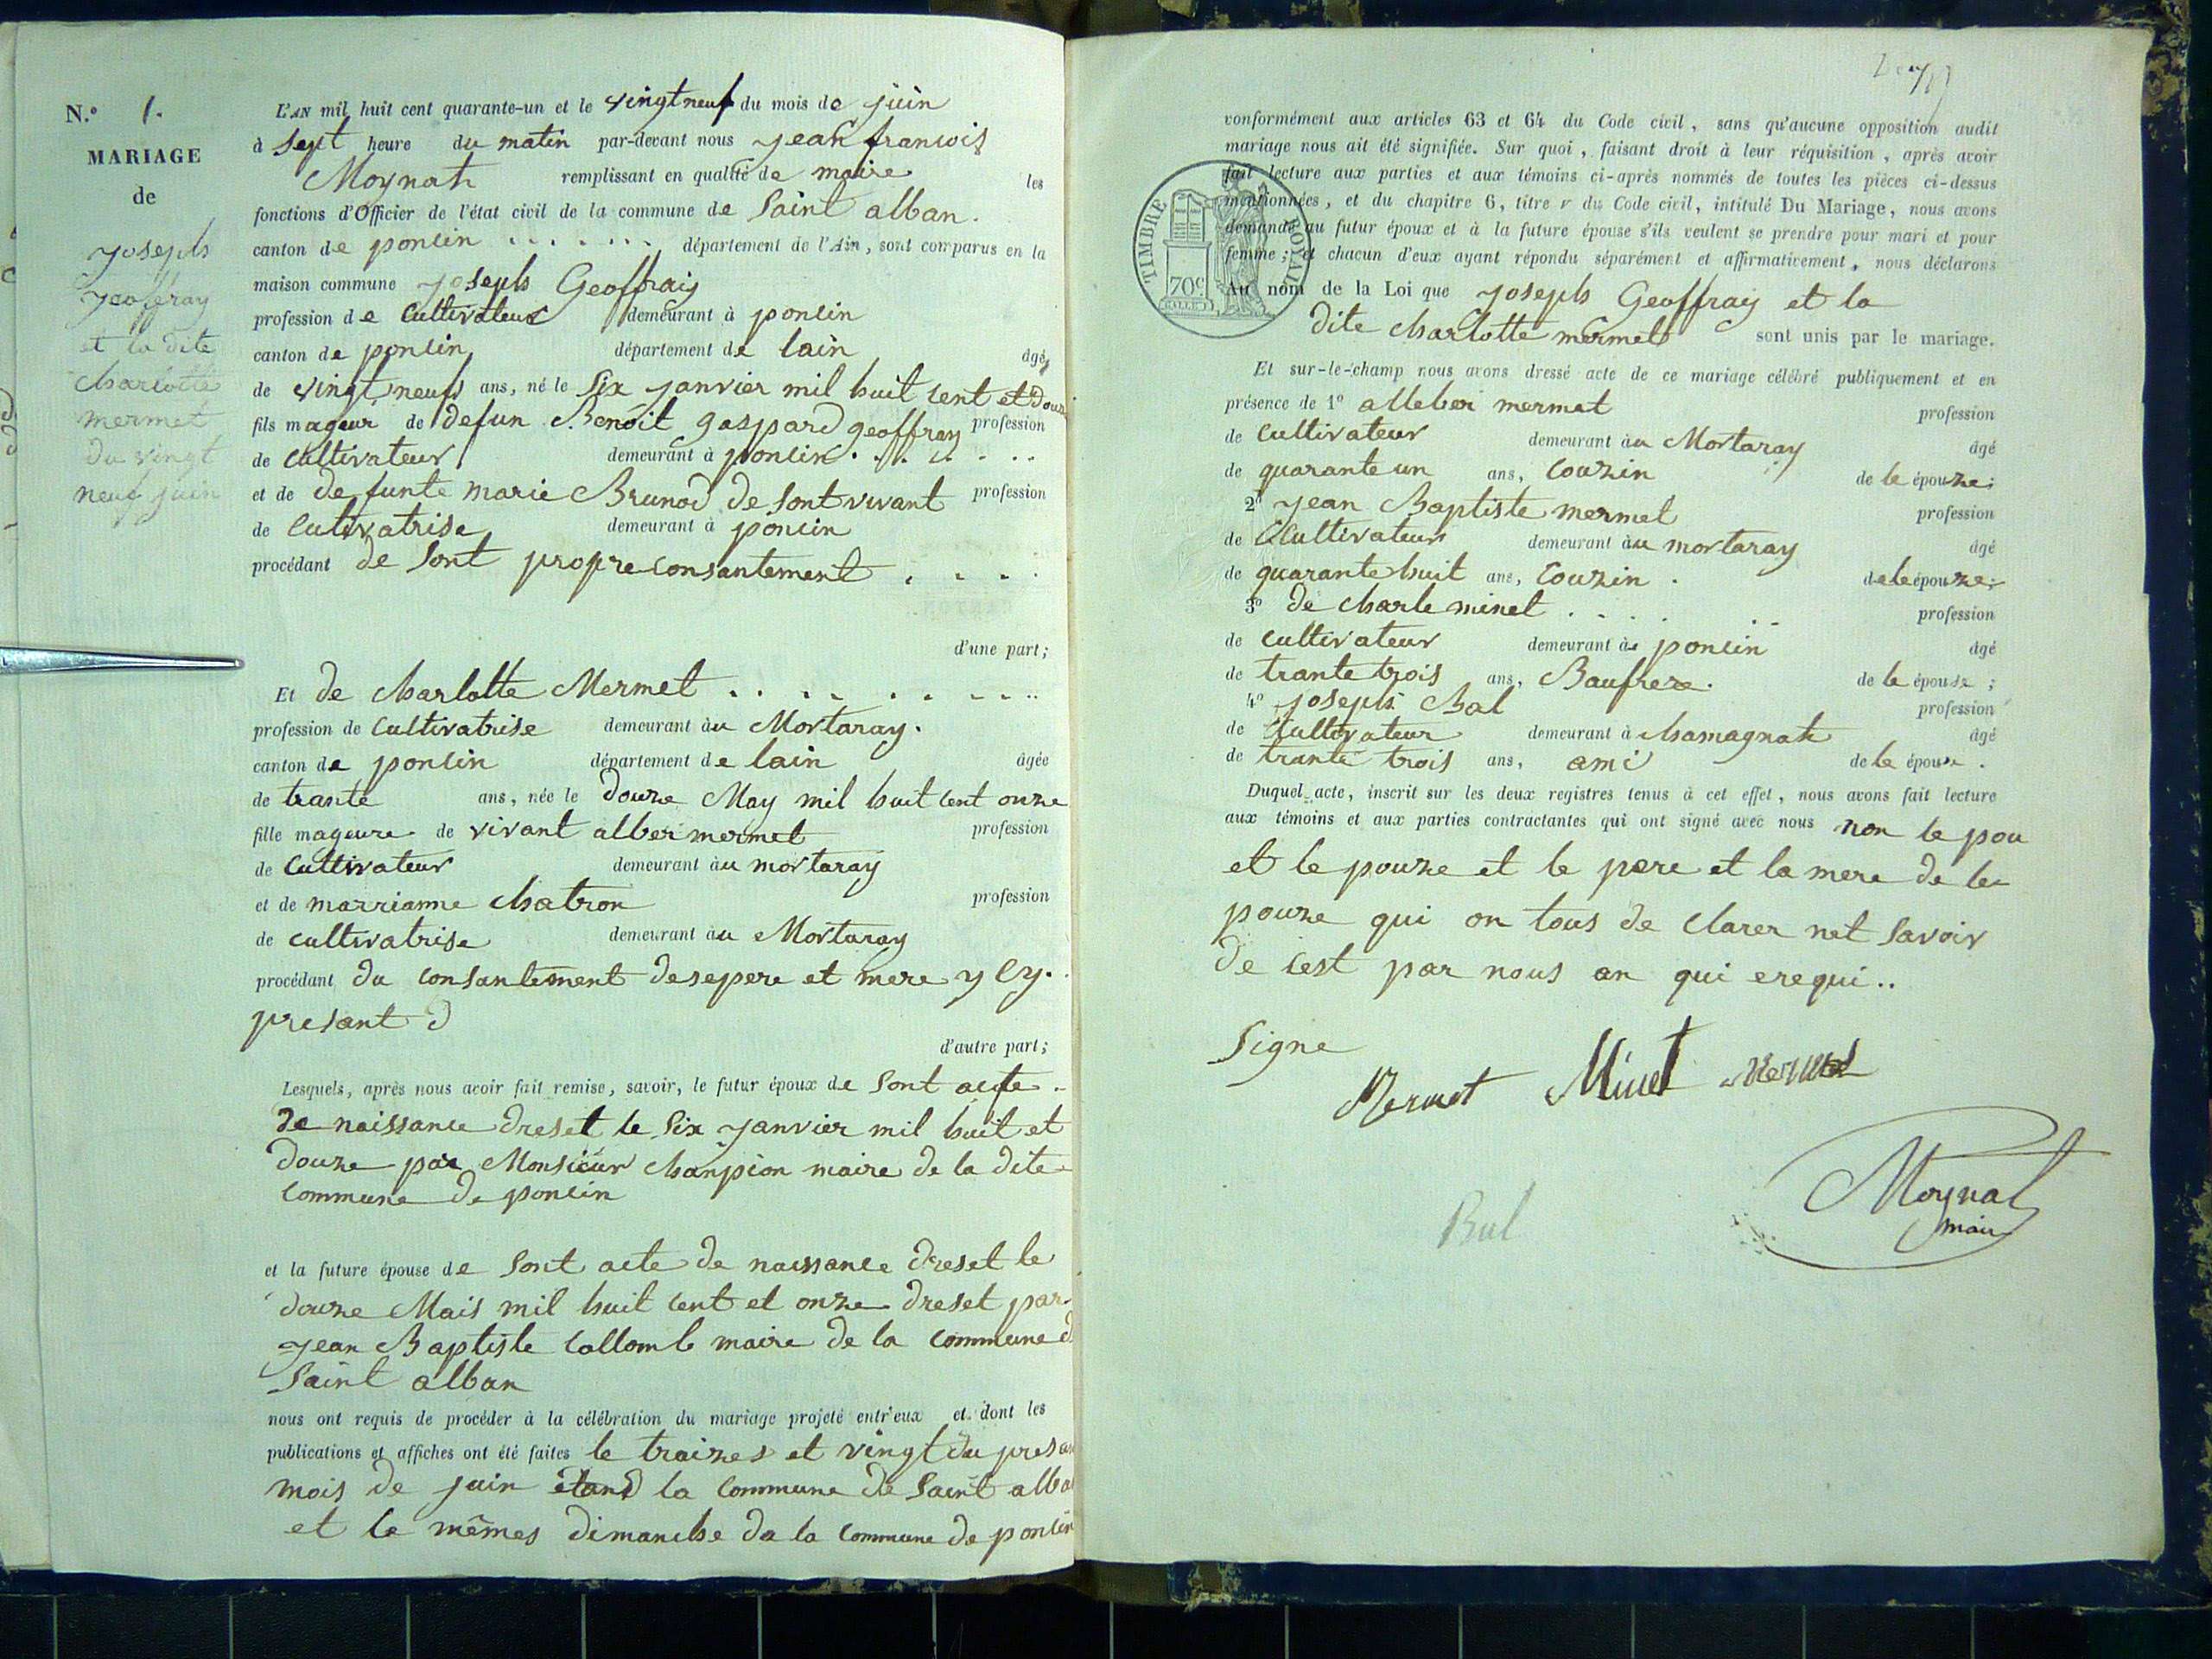 N.° 1.
MARIAGE
de
joseph
geoffray
et la dite
charlotte
mermet
du vingt
neuf juin
L'AN mil huit cent quarante-un et le vingt neuf du mois de juin
à sept heure du matin par-devant nous jean francois
Moynat remplissant en qualité de maire les
fonctions d'Officier de l'état civil de la commune de Saint alban.
canton de poncin . . . . . . département de l'Ain, sont comparus en la
maison commune joseph Geoffray
profession de Cultivateur demeurant à poncin
canton de poncin département de lain âgé
de vingt neuf ans, né le six janvier mil huit cent et douze
fils mageur de defun Benoit gaspard geoffray profession
de Cultivateur demeurant à poncin . . . . . .
et de defunte marie Brunod de sont vivant profession
de Cultivatrise demeurant à poncin
procédant de sont propre consantement . . . .
d'une part;
Et de charlotte Mermet . . . . . . . . .
profession de Cultivatrise demeurant àu Mortaray.
canton de poncin département de lain âgée
de trante ans, née le douze May mil huit cent onze
fille mageure de vivant alber mermet profession
de Cultivateur demeurant àu mortaray
et de marrianne chatron profession
de cultivatrise demeurant àu Mortaray
procédant du consantement desepere et mere y cy.
presant d
d'autre part;
Lesquels, après nous avoir fait remise, savoir, le futur époux de sont acte
de naissance dreset le six janvier mil huit et
douze par Monsieur chanpion maire de la dite
commune de poncin
et la future épouse de sont acte de naissance dreset le
douze Mais mil huit cent et onze dreset par
jean Baptiste collomb maire de la commune d
Saint alban
nous ont requis de procéder à la célébration du mariage projeté entr'eux et dont les
publications et affiches ont été faites le traizes et vingt du presan
mois de juin etand la commune de Saint alba
et le mêmes dimanche da la commune de poncin
conformément aux articles 63 et 64 du Code civil, sans qu'aucune opposition audit
mariage nous ait été signifiée. Sur quoi, faisant droit à leur réquisition, après avoir
fait lecture aux parties et aux témoins ci-après nommés de toutes les pièces ci-dessus
mentionnées, et du chapitre 6, titre v du Code civil, intitulé Du Mariage, nous avons
demandé au futur époux et à la future épouse s'ils veulent se prendre pour mari et pour
femme; et chacun d'eux ayant répondu séparément et affirmativement, nous déclarons
TIMBRE ROYAL
70c.
Au nom de la Loi que joseph Geoffray et la
dite charlotte mermet sont unis par le mariage.
Et sur-le-champ nous avons dressé acte de ce mariage célébré publiquement et en
présence de 1° alleber mermet profession
de Cultivateur demeurant àu Mortaray âgé
de quarante un ans, Couzin de le épouze;
2° jean Baptiste mermet profession
de Cultivateur demeurant àu mortaray âgé
de quarante huit ans, Couzin . de le épouze;
3° de charle minet . . . . . profession
de cultivateur demeurant à poncin âgé
de trante trois ans, Baufrere. de le épouse;
4° joseph Bal profession
de Cultivateur demeurant à chamagnat âgé
de trante trois ans, ami de le épouse.
Duquel acte, inscrit sur les deux registres tenus à cet effet, nous avons fait lecture
aux témoins et aux parties contractantes qui ont signé avec nous non le pou
et le pouze et le pere et la mere de le
pouze qui on tous de clarer net savoir
de cest par nous an qui erequi..
Signe
Mermet Minet Mermet
Moynat
maire
Bal